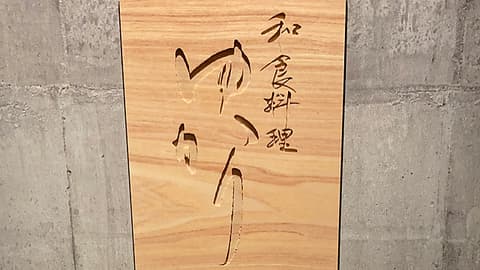 和食料理
ゆかり